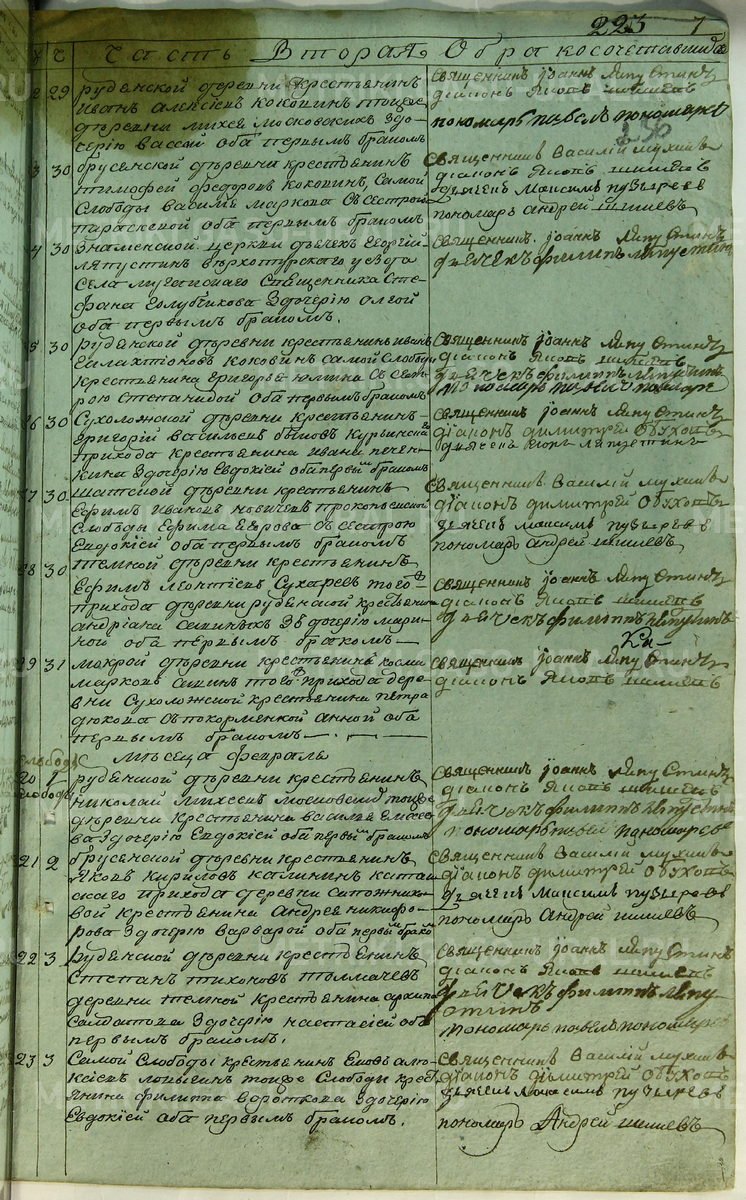 223 7
Часть Вторая О бракосочетавшихся
2 29 руденской деревни крестьянинъ
иванъ алексѣевъ коковинъ тоцже
деревни михея московскихъ здо-
черїю вассой оба первымъ бракомъ
священникъ їоаннъ ляпустинъ
дїаконъ яковъ шишевъ
пономарь павелъ пономаревъ
3 30 брусенской деревни крестьянинъ
тимофей федоровъ коковинъ, самой
слободы василья маркова съсестрой
параскевой оба первымъ бракомъ
священникъ василїй мухинъ
дїаконъ яковъ шишевъ
дьячекъ максимъ пузыревъ
пономарь андрей шишевъ
4 30 знаменской церкви дьячекъ георгїй
ляпустинъ верхотурского уезда
села мугайского священника сте-
фана голубчикова здочерїю олгой
оба первымъ бракомъ.
священникъ їоаннъ ляпустинъ
дьячекъ филипъ ляпустинъ
5 30 руденской деревни крестьянинъ иванъ
галахтїоновъ коковинъ самой слободы
крестьянина григорья съсест-
рою степанидой оба первымъ бракомъ
священникъ їоаннъ ляпустинъ
дїаконъ яковъ шишевъ
дьячекъ филипъ ляпустинъ
пономарь павелъ пономаревъ
16 30 сухоложской деревни крестьянинъ
григорїй васильевъ быковъ курьинскаго
прихода крестьянина ивана печен-
кина здочерїю евдокїей оба первымъ бракомъ
священникъ їоаннъ ляпустинъ
дїаконъ димитрей обуховъ
дьячекъ ляпустинъ
17 30 шатской деревни крестьянинъ
ефимъ ивановъ новичевъ прокопьевской
слободы ефима егорова съсестрою
евдокїей оба первымъ бракомъ
священникъ василїй мухинъ
дїаконъ димитрей обуховъ
дьячекъ максимъ пузыревъ
пономарь андрей шишевъ
28 30 темной деревни крестьянинъ
ефимъ леонтїевъ сухаревъ тогоже
прихода деревни руденской крестьянина
андрїана здочерїю мари-
ной оба первымъ бракомъ
священникъ їоаннъ ляпустинъ
дїаконъ яковъ шишевъ
дьячекъ филипъ ляпустинъ
29 31 мокрой деревни крестьянинъ козма
марковъ тогоже прихода дере-
вни сухоложской крестьянина петра
дюкова съпокормленкой анной оба
первымъ бракомъ
священникъ їоаннъ ляпустинъ
дїаконъ яковъ шишевъ
мѣсеца февраля
20 1 руденской деревни крестьянинъ
николай михеевъ московскихъ тоцже
деревни крестьянина василья елисее-
ва здочерїю евдокїей оба первымъ бракомъ
священникъ їоаннъ ляпустинъ
дїаконъ яковъ шишевъ
дьячекъ филипъ ляпустинъ
пономарь павелъ пономаревъ
21 2 брусенской деревни крестьянинъ
яковъ кириловъ калининъ катай-
скаго прихода деревни сапожнико-
вой крестьянина андрея никифо-
рова здочерїю варварой оба первымъ бракомъ
священникъ василїй мухинъ
дїаконъ димитрей обуховъ
дьячекъ максимъ пузыревъ
пономарь андрей шишевъ
22 3 руденской деревни крестьянинъ
степанъ тихоновъ толмачевъ
деревни темной крестьянина архипа
салдатова здочерїю настасїей оба
первымъ бракомъ.
священникъ їоаннъ ляпустинъ
дїаконъ яковъ шишевъ
дьячекъ филипъ ляпу-
стинъ
пономарь павелъ пономаревъ
23 3 самой слободы крестьянинъ алек-
сїевъ тоцже слободы крест-
янина филипа вороткова здочерїю
евдокїей оба первымъ бракомъ.
священникъ василїй мухинъ
дїаконъ димитрей обуховъ
дьячекъ максимъ пузыревъ
пономарь андрей шишевъ